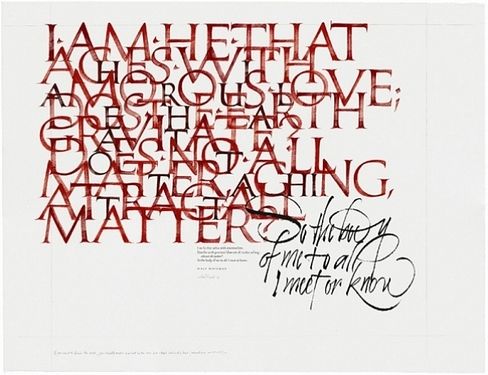 I·AM·HE·THAT
ACHES·WITH
AMOROUS·LOVE;
DOES·THE·EARTH
GRAVITATE
DOES·NOT·ALL
MATTER, ACHING,
ATTRACT·ALL
MATTER?
So the body
of me to all
I meet or know
I am he that aches with amorous love;
Does the earth gravitate? Does not all matter, aching,
attract all matter?
So the body of me to all I meet or know.
WALT WHITMAN